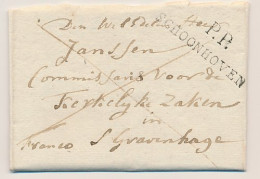 Den WelEdele Heer
P.P.
SCHOONHOVEN
Janssen
Commissaris voor de
Kerkelyke Zaken
in
Franco S Gravenhage